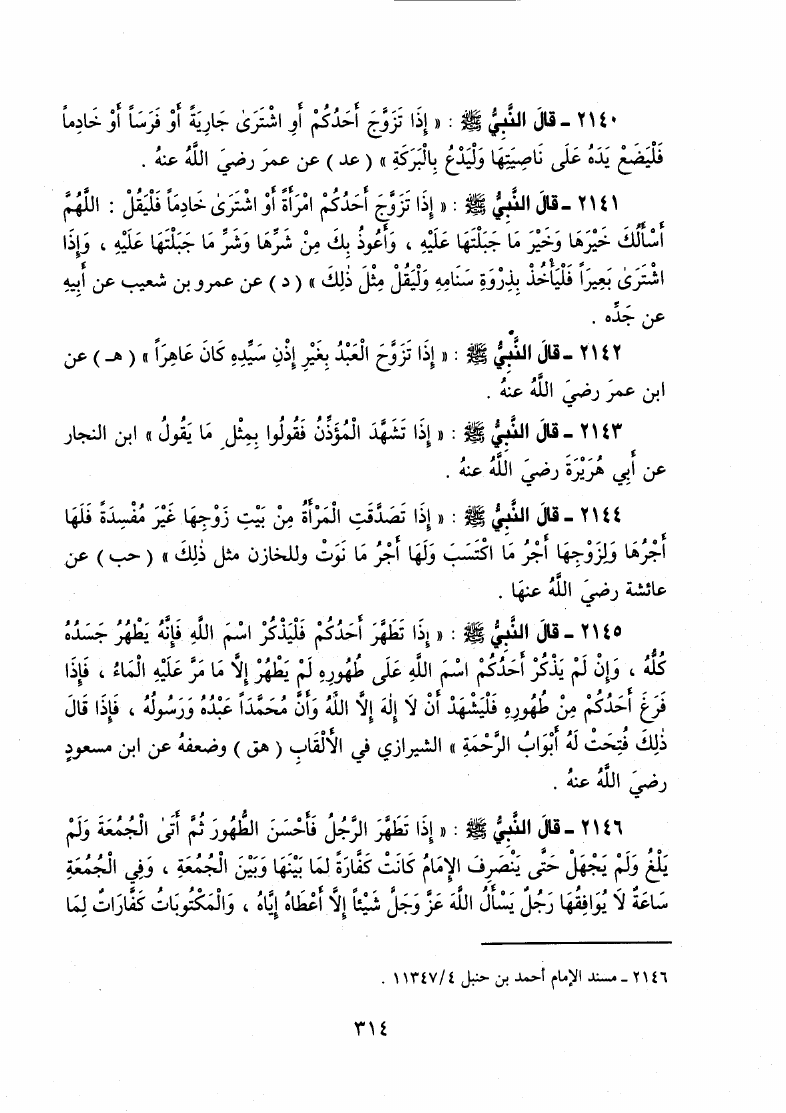 ٢١٤٠ ـ قالَ النَّبِيُّ ﷺ : « إِذَا تَزَوَّجَ أَحَدُكُمْ أَوِ اشْتَرَىٰ جَارِيَةً أَوْ فَرَسَاً أَوْ خَادِماً
فَلْيَضَعْ يَدَهُ عَلَى نَاصِيَتِهَا وَلْيَدْعُ بِالْبَرَكَةِ » ( عد ) عن عمرَ رضيَ اللَّهُ عنهُ .
٢١٤١ ـ قالَ النَّبِيُّ ﷺ : « إِذَا تَزَوَّجَ أَحَدُكُمْ امْرَأَةً أَوْ اشْتَرَىٰ خَادِمَاً فَلْيَقُلْ : اللَّهُمَّ
أَسْأَلُكَ خَيْرَهَا وَخَيْرَ مَا جَبَلْتَهَا عَلَيْهِ ، وَأَعُوذُ بِكَ مِنْ شَرِّهَا وَشَرِّ مَا جَبَلْتَهَا عَلَيْهِ ، وَإِذَا
اشْتَرَىٰ بَعِيرَاً فَلْيَأْخُذْ بِذِرْوَةِ سَنَامِهِ وَلْيَقُلْ مِثْلَ ذٰلِكَ » ( د ) عن عمرو بن شعيب عن أَبيهِ
عن جَدِّه .
٢١٤٢ ـ قالَ النَّبِيُّ ﷺ : « إِذَا تَزَوَّجَ الْعَبْدُ بِغَيْرِ إِذْنِ سَيِّدِهِ كَانَ عَاهِرَاً » ( هـ ) عن
ابن عمرَ رضيَ اللَّهُ عنهُ .
٢١٤٣ ـ قالَ النَّبِيُّ ﷺ : « إِذَا تَشَهَّدَ الْمُؤَذِّنُ فَقُولُوا بِمِثْلِ مَا يَقُولُ » ابن النجار
عن أَبِي هُرَيْرَةَ رضيَ اللَّهُ عنهُ .
٢١٤٤ ـ قالَ النَّبِيُّ ﷺ : « إِذَا تَصَدَّقَتِ الْمَرْأَةُ مِنْ بَيْتِ زَوْجِهَا غَيْرَ مُفْسِدَةً فَلَهَا
أَجْرُهَا وَلِزَوْجِهَا أَجْرُ مَا اكْتَسَبَ وَلَهَا أَجْرُ مَا نَوَتْ وللخازن مثل ذٰلِكَ » ( حب ) عن
عائشة رضيَ اللَّهُ عنهَا .
٢١٤٥ ـ قالَ النَّبِيُّ ﷺ : « إِذَا تَطَهَّرَ أَحَدُكُمْ فَلْيَذْكُرْ اسْمَ اللَّهِ فَإِنَّهُ يَطْهُرُ جَسَدُهُ
كُلُّهُ ، وَإِنْ لَمْ يَذْكُرْ أَحَدُكُمْ اسْمَ اللَّهِ عَلَى طُهُورِهِ لَمْ يَطْهُرْ إِلَّا مَا مَرَّ عَلَيْهِ الْمَاءُ ، فَإِذَا
فَرَغَ أَحَدُكُمْ مِنْ طُهُورِهِ فَلْيَشْهَدْ أَنْ لَا إِلٰهَ إِلَّا اللَّهُ وَأَنَّ مُحَمَّدَاً عَبْدُهُ وَرَسُولُهُ ، فَإِذَا قَالَ
ذٰلِكَ فُتِحَتْ لَهُ أَبْوَابُ الرَّحْمَةِ » الشيرازي في الأَلْقَابِ ( هق ) وضعفهُ عن ابن مسعودٍ
رضيَ اللَّهُ عنهُ .
٢١٤٦ ـ قالَ النَّبِيُّ ﷺ : « إِذَا تَطَهَّرَ الرَّجُلُ فَأَحْسَنَ الطُّهُورَ ثُمَّ أَتَىٰ الْجُمُعَةَ وَلَمْ
يَلْغُ وَلَمْ يَجْهَلْ حَتَّى يَنْصَرِفَ الإِمَامُ كَانَتْ كَفَّارَةً لِمَا بَيْنَهَا وَبَيْنَ الْجُمُعَةِ ، وَفِي الْجُمُعَةِ
سَاعَةٌ لَا يُوَافِقُهَا رَجُلٌ يَسْأَلُ اللَّهَ عَزَّ وَجَلَّ شَيْئَاً إِلَّا أَعْطَاهُ إِيَّاهُ ، وَالْمَكْتُوبَاتُ كَفَّارَاتٌ لِمَا
٢١٤٦ ـ مسند الإمام أحمد بن حنبل ١١٣٤٧/٤ .
٣١٤